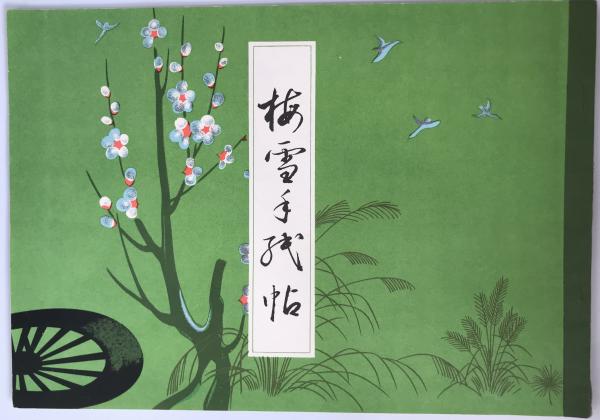 梅雪手残帖